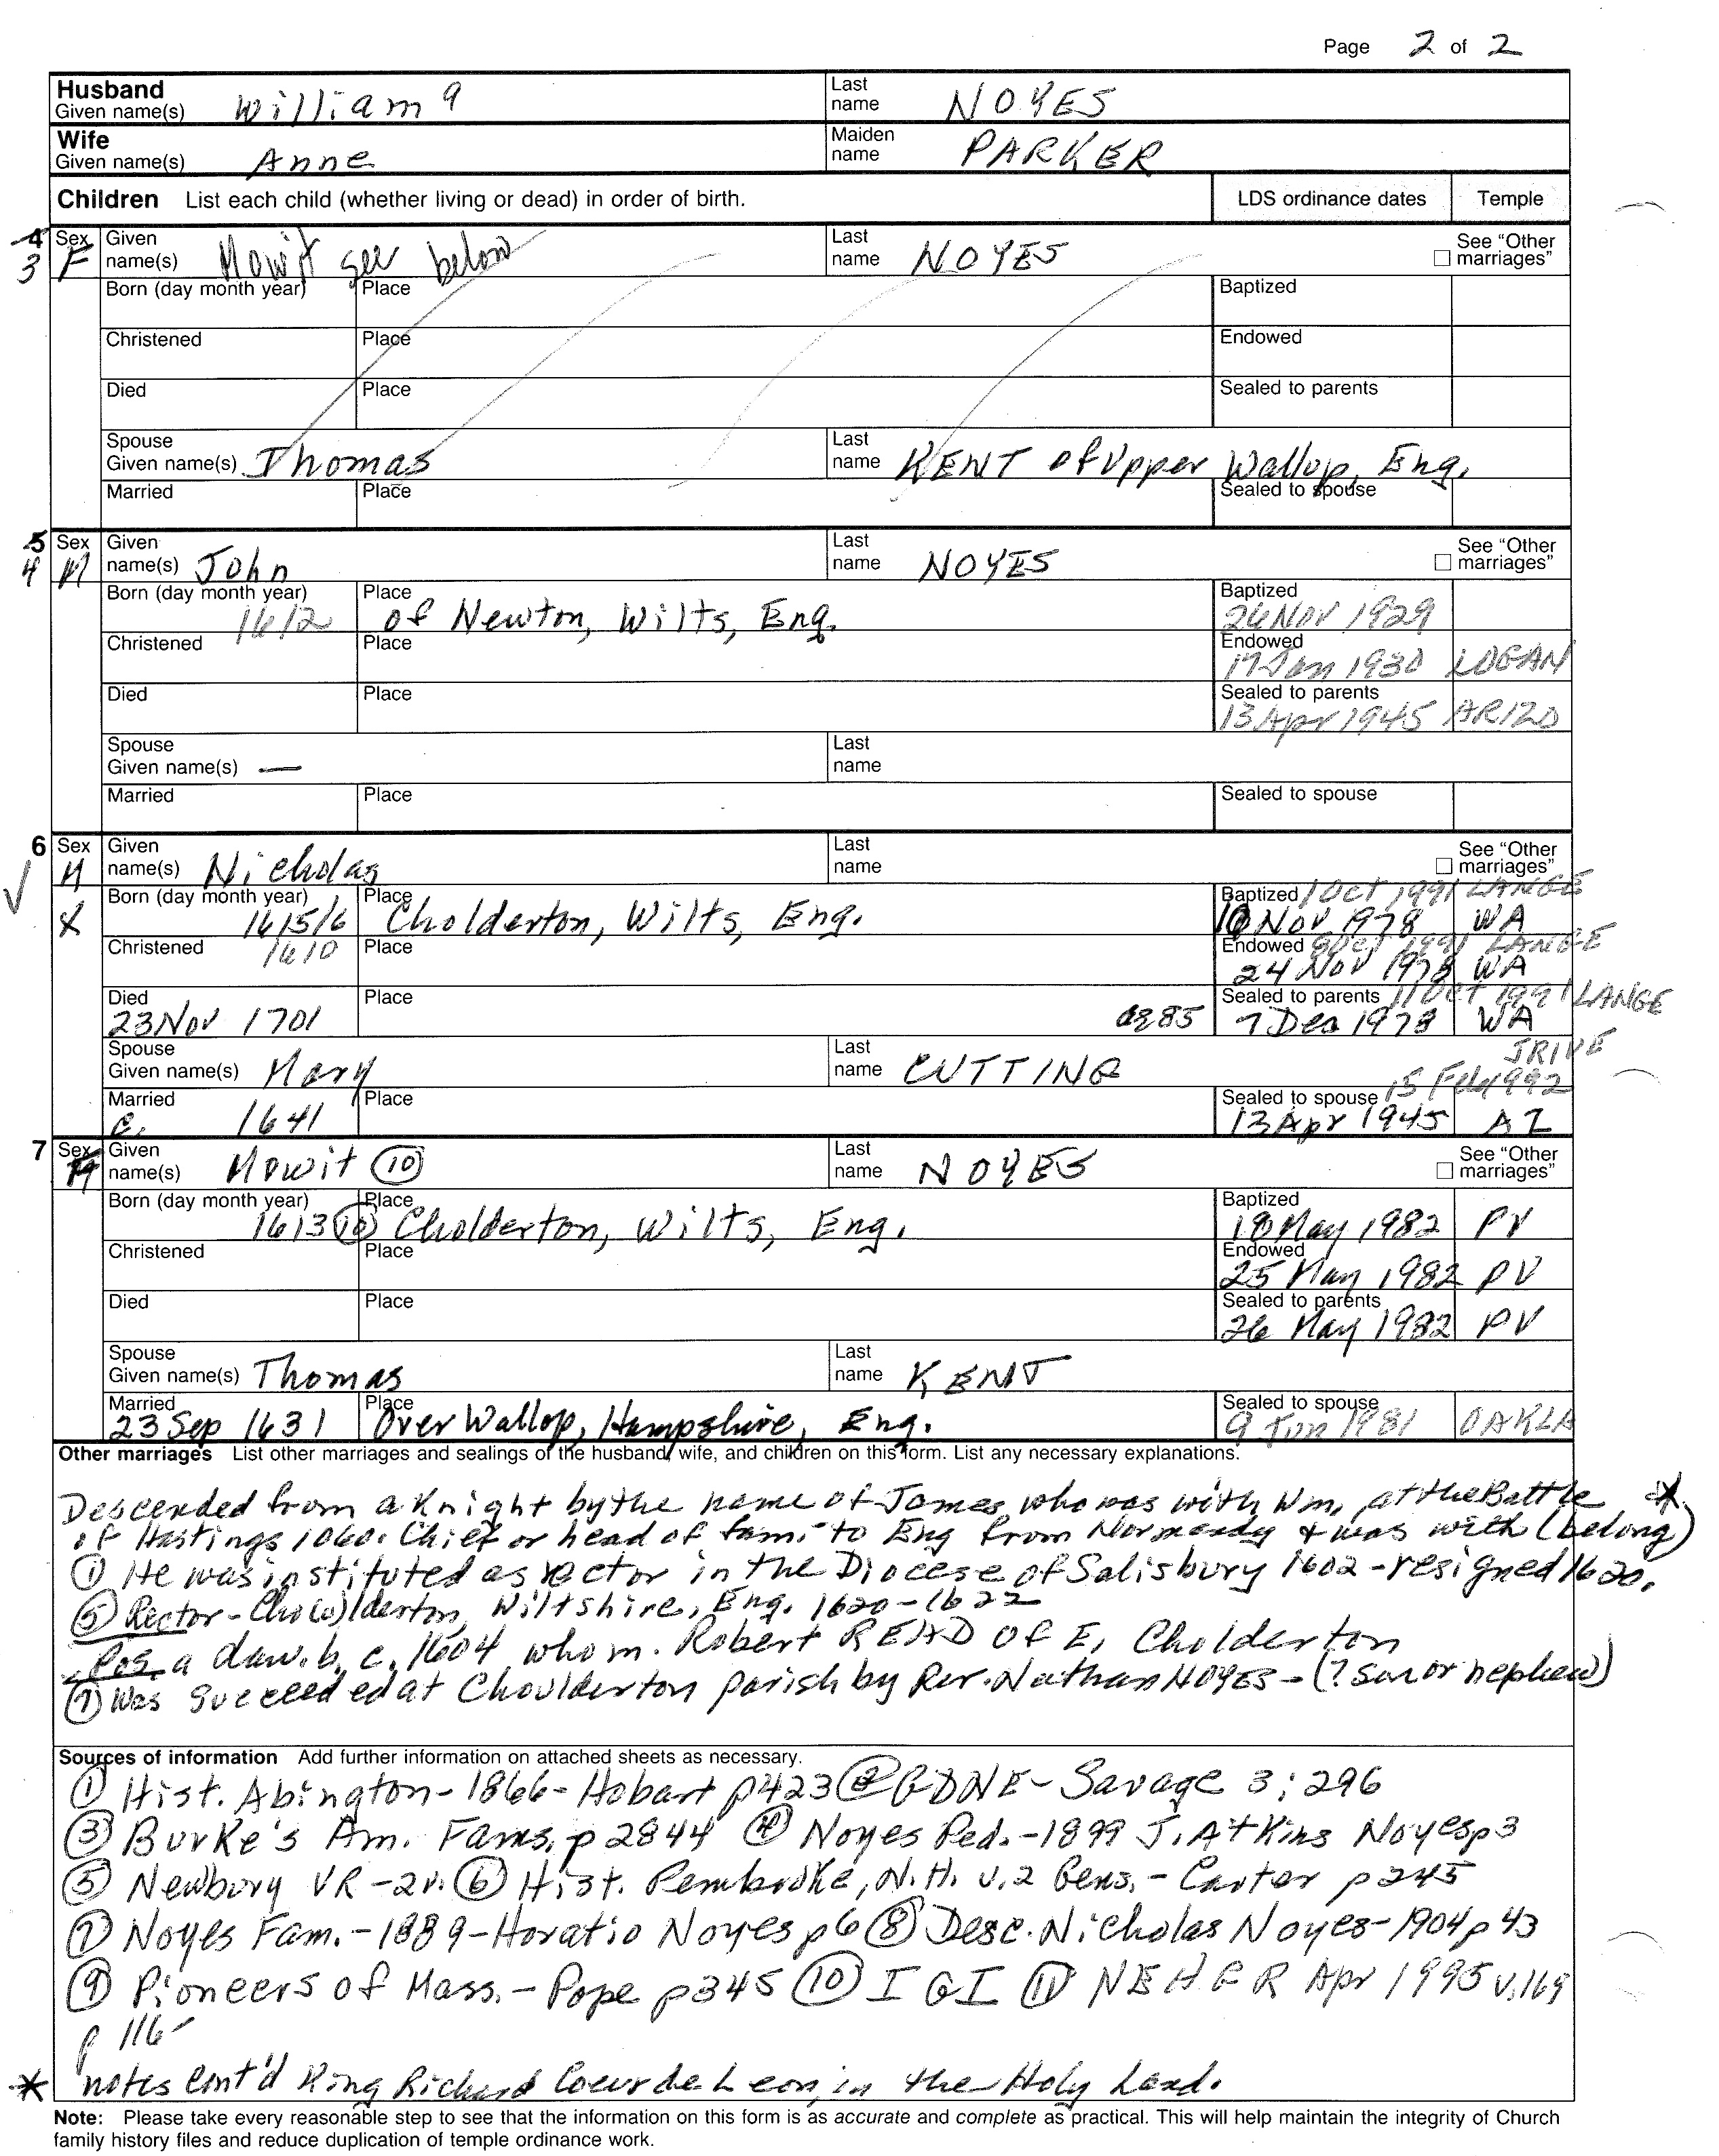 Page 2 of 2
Husband Given name(s) William 9 Last name NOYES
Wife Given name(s) Anne Maiden name PARKER
Children List each child (whether living or dead) in order of birth. LDS ordinance dates Temple
4 3 Sex F Given name(s) Mowit see below Last name NOYES See "Other marriages"
Born (day month year) Place Baptized
Christened Place Endowed
Died Place Sealed to parents
Spouse Given name(s) Thomas Last name KENT of Upper Wallup, Eng.
Married Place Sealed to spouse
5 4 Sex M Given name(s) John Last name NOYES See "Other marriages"
Born (day month year) 1612 Place of Newton, Wilts, Eng. Baptized 26 Nov 1929
Christened Place Endowed 17 Jan 1930 LOGAN
Died Place Sealed to parents 13 Apr 1945 ARIZO
Spouse Given name(s) — Last name
Married Place Sealed to spouse
6 Sex M Given name(s) Nicholas Last name See "Other marriages"
X Born (day month year) 1615/6 Place Cholderton, Wilts, Eng. Baptized 1 Oct 1991 LANGE 10 Nov 1978 WA
Christened 1610 Place Endowed Oct 1991 LANGE 24 Nov 1978 WA
Died 23 Nov 1701 Place ag 85 Sealed to parents 11 Oct 1991 LANGE 7 Dec 1978 WA
Spouse Given name(s) Mary Last name CUTTING JRIVE
Married c. 1641 Place Sealed to spouse 15 Feb 1992 13 Apr 1945 AZ
7 Sex Given name(s) Mowit (10) Last name NOYES See "Other marriages"
Born (day month year) 1613 (10) Place Cholderton, Wilts, Eng. Baptized 18 May 1982 PV
Christened Place Endowed 25 May 1982 PV
Died Place Sealed to parents 26 May 1982 PV
Spouse Given name(s) Thomas Last name KENT
Married 23 Sep 1631 Place Over Wallop, Hampshire, Eng. Sealed to spouse 9 Jun 1981 OAKLA
Other marriages List other marriages and sealings of the husband, wife, and children on this form. List any necessary explanations.
Descended from a Knight by the name of James who was with Wm, at the Battle *
of Hastings 1060. Chief or head of fami to Eng from Normandy & was with (belong)
(1) He was instituted as rector in the Diocese of Salisbury 1602 - resigned 1620.
(5) Rector - Cho(w)lderton, Wiltshire, Eng. 1620-1622
Pos. a daw. b. c. 1604 who m. Robert READ of E, Cholderton
(7) Was succeeded at Choulderton parish by Rev. Nathan NOYES - (? son or nephew)
Sources of information Add further information on attached sheets as necessary.
(1) Hist. Abington - 1866 - Hobart p423 (2) GDNE - Savage 3; 296
(3) Burke's Am. Fams. p 2844 (4) Noyes Ped. - 1899 J. Atkins Noyes p3
(5) Newbury VR - 2v. (6) Hist. Pembroke, N.H. v.2 Gens. - Carter p245
(7) Noyes Fam. - 1889 - Horatio Noyes p6 (8) Desc. Nicholas Noyes - 1904 p 43
(9) Pioneers of Mass. - Pope p345 (10) IGI (11) NEHGR Apr 1995 v.169
p 116
* notes cont'd King Richard Coeur de Leon, in the Holy Land.
Note: Please take every reasonable step to see that the information on this form is as accurate and complete as practical. This will help maintain the integrity of Church
family history files and reduce duplication of temple ordinance work.